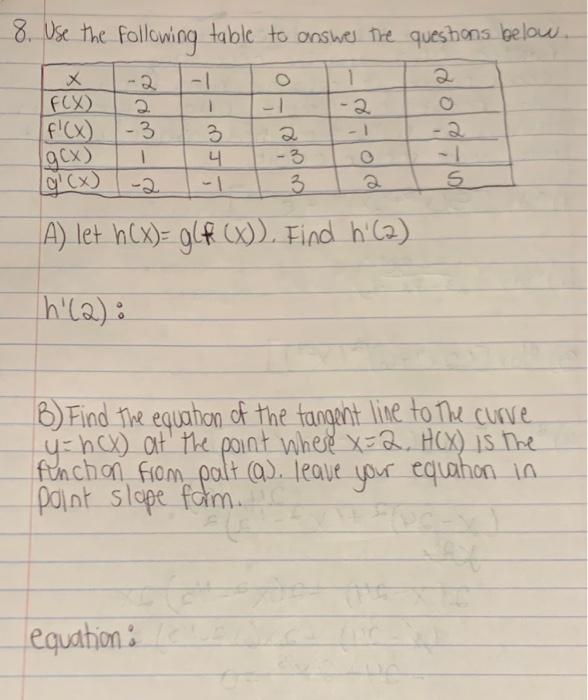 8. Use the following table to answer the questions below.
x -2 -1 0 1 2
f(x) 2 1 -1 -2 0
f'(x) -3 3 2 -1 -2
g(x) 1 4 -3 0 -1
g'(x) -2 -1 3 2 5
A) let h(x)= g(f(x)). Find h'(2)
h'(2):
B) Find the equation of the tangent line to the curve
y=h(x) at the point where x=2. H(x) is the
function from part (a). leave your equation in
point slope form.
equation: